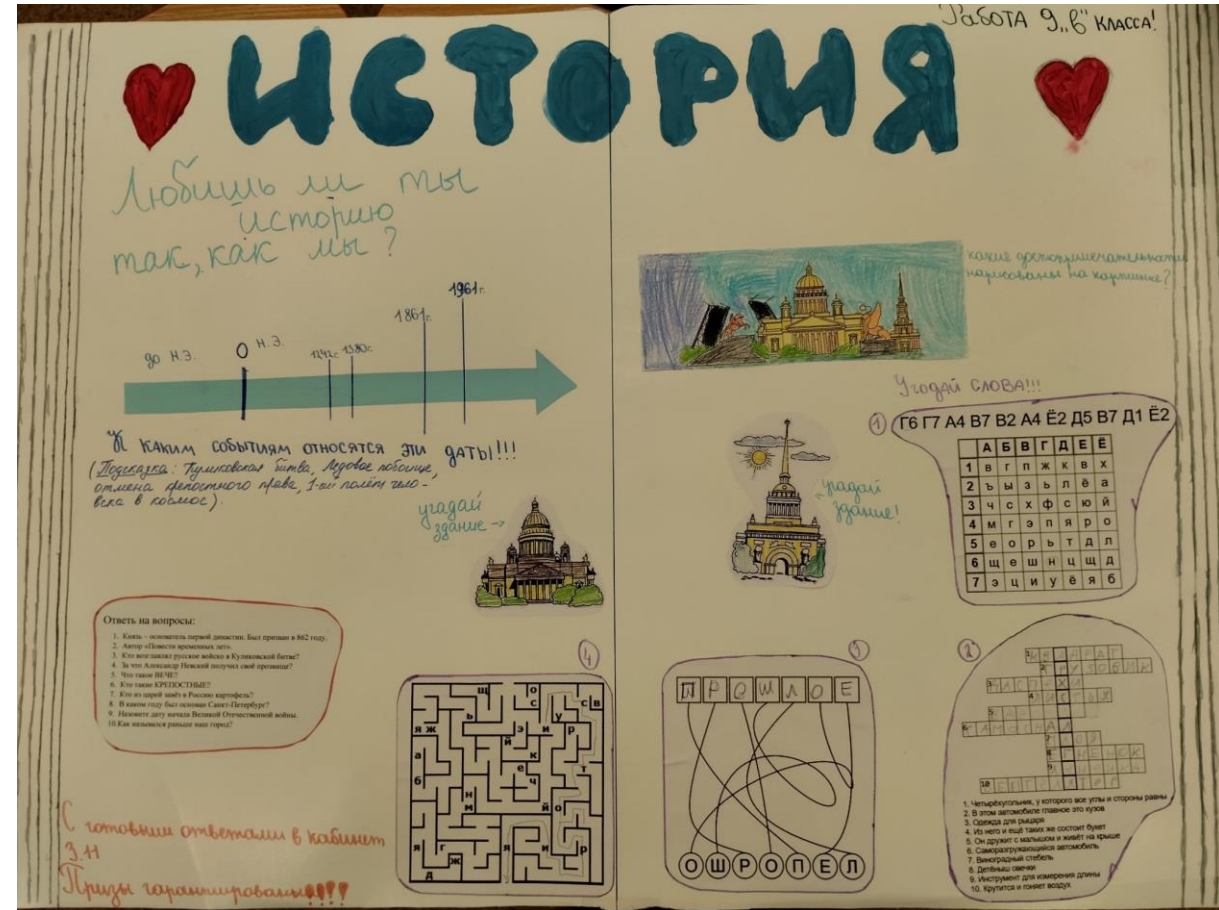 Работа 9 „в" класса!
ИСТОРИЯ
Любишь ли ты
историю
так, как мы?
до н.э. 0 н.э. 1242г. 1380г. 1861г. 1961г.
К каким событиям относятся эти даты!!!
(Подсказка: Куликовская битва, Ледовое побоище,
отмена крепостного права, 1-ый полёт чело-
века в космос).
угадай
здание →
Ответь на вопросы:
1. Князь – основатель первой династии. Был призван в 862 году.
2. Автор «Повести временных лет».
3. Кто возглавлял русское войско в Куликовской битве?
4. За что Александр Невский получил своё прозвище?
5. Что такое ВЕЧЕ?
6. Кто такие КРЕПОСТНЫЕ?
7. Кто из царей завёз в Россию картофель?
8. В каком году был основан Санкт-Петербург?
9. Назовите дату начала Великой Отечественной войны.
10. Как назывался раньше наш город?
С готовыми ответами в кабинет
3.11
Призы гарантированы!!!!
4
щ о с с в
я ж ь э и у р
а й к
б е ч т
н м й о
я г ж я и р
д
какие достопримечательности
нарисованы на картинке?
угадай
здание!
Угодай слова!!!
1
Г6 Г7 А4 В7 В2 А4 Ё2 Д5 В7 Д1 Ё2
А Б В Г Д Е Ё
1 в г п ж к в х
2 ъ ы з ь л ё а
3 ч с х ф с ю й
4 м г э п я р о
5 е о р ь т д л
6 щ е ш н ц щ д
7 э ц и у ё я б
3
ПРОШЛОЕ
ОШРОПЕЛ
2
1 КВАДРАТ
2 ГРУЗОВИК
3
4
5
6 САМОСВАЛ
7
8 ЯГНЕНОК
9
10 ВЕНТИЛЯТОР
1. Четырёхугольник, у которого все углы и стороны равны
2. В этом автомобиле главное это кузов
3. Одежда для рыцаря
4. Из него и ещё таких же состоит букет
5. Он дружит с малышом и живёт на крыше
6. Саморазгружающийся автомобиль
7. Виноградный стебель
8. Детёныш овечки
9. Инструмент для измерения длины
10. Крутится и гоняет воздух